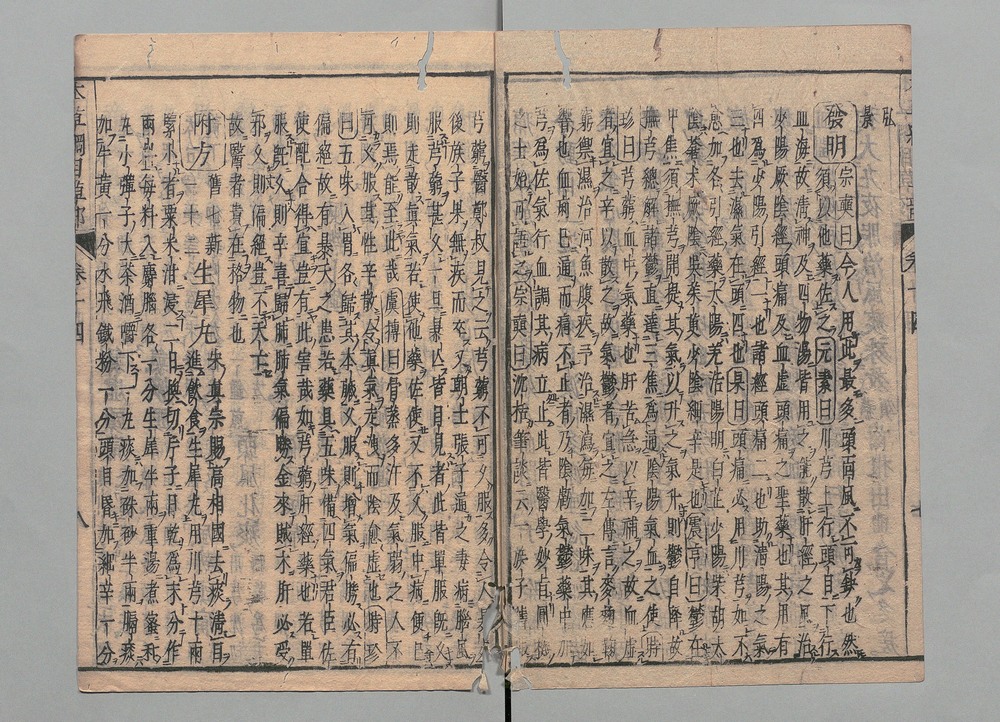 弘景
發明 宗奭曰今人用此最多頭面風不可缺也然
須以他藥佐之元素曰川芎上行頭目下行
血海故清神及四物湯皆用之能散肝經之風治
少陽厥陰經頭痛及血虛頭痛之聖藥也其用有
四為少陽引經一也諸經頭痛二也助清陽之氣
三也去濕氣在頭四也杲曰頭痛必用川芎如不
愈加各引經藥太陽羌活陽明白芷少陽柴胡太
陰蒼朮厥陰吳茱萸少陰細辛是也震亨曰鬱在
中焦須撫芎開提其氣以升之氣升則鬱自降故
撫芎總解諸鬱直達三焦為通陰陽氣血之使時
珍曰芎藭血中氣藥也肝苦急以辛補之故血虛
者宜之辛以散之故氣鬱者宜之左傳言麥麴鞠
窮禦濕治河魚腹疾予治濕瀉每加二味其應如
響也血痢已通而痛不止者乃陰虧氣鬱藥中加
芎為佐氣行血調其病立止此皆醫學妙旨圓機
之士始可語之宗奭曰沈括筆談云一族子舊服
芎藭醫鄭叔見之云芎藭不可久服多令人暴死
後族子果無疾而卒又朝士張子通之妻病腦風
服芎藭甚久一旦暴亡皆目見者此皆單服既久
則走散真氣若使他藥佐使又不久服中病便已
則焉能至此哉虞摶曰骨蒸多汗及氣弱之人不
可久服其性辛散令真氣走洩而陰愈虛也時珍
曰五味入胃各歸其本臟久服則增氣偏勝必有
偏絕故有暴夭之患若藥具五味備四氣君臣佐
使配合得宜豈有此害哉如芎藭肝經藥也若單
服既久則辛喜歸肺肺氣偏勝金來賊木肝必受
邪久則偏絕豈不夭亡
故醫者貴在格物也
附方 舊 新 生犀丸 宋真宗賜高相國去痰清目
進飲食生犀丸用川芎十兩
緊小者粟米泔浸二日換切片子日乾為末分作
兩料每料入麝腦各一分生犀半兩重湯煮蜜和
丸小彈子大茶酒嚼下一丸痰加硃砂半兩膈痰
加牛黃一分水飛鐵粉一分頭目昏加細辛一分